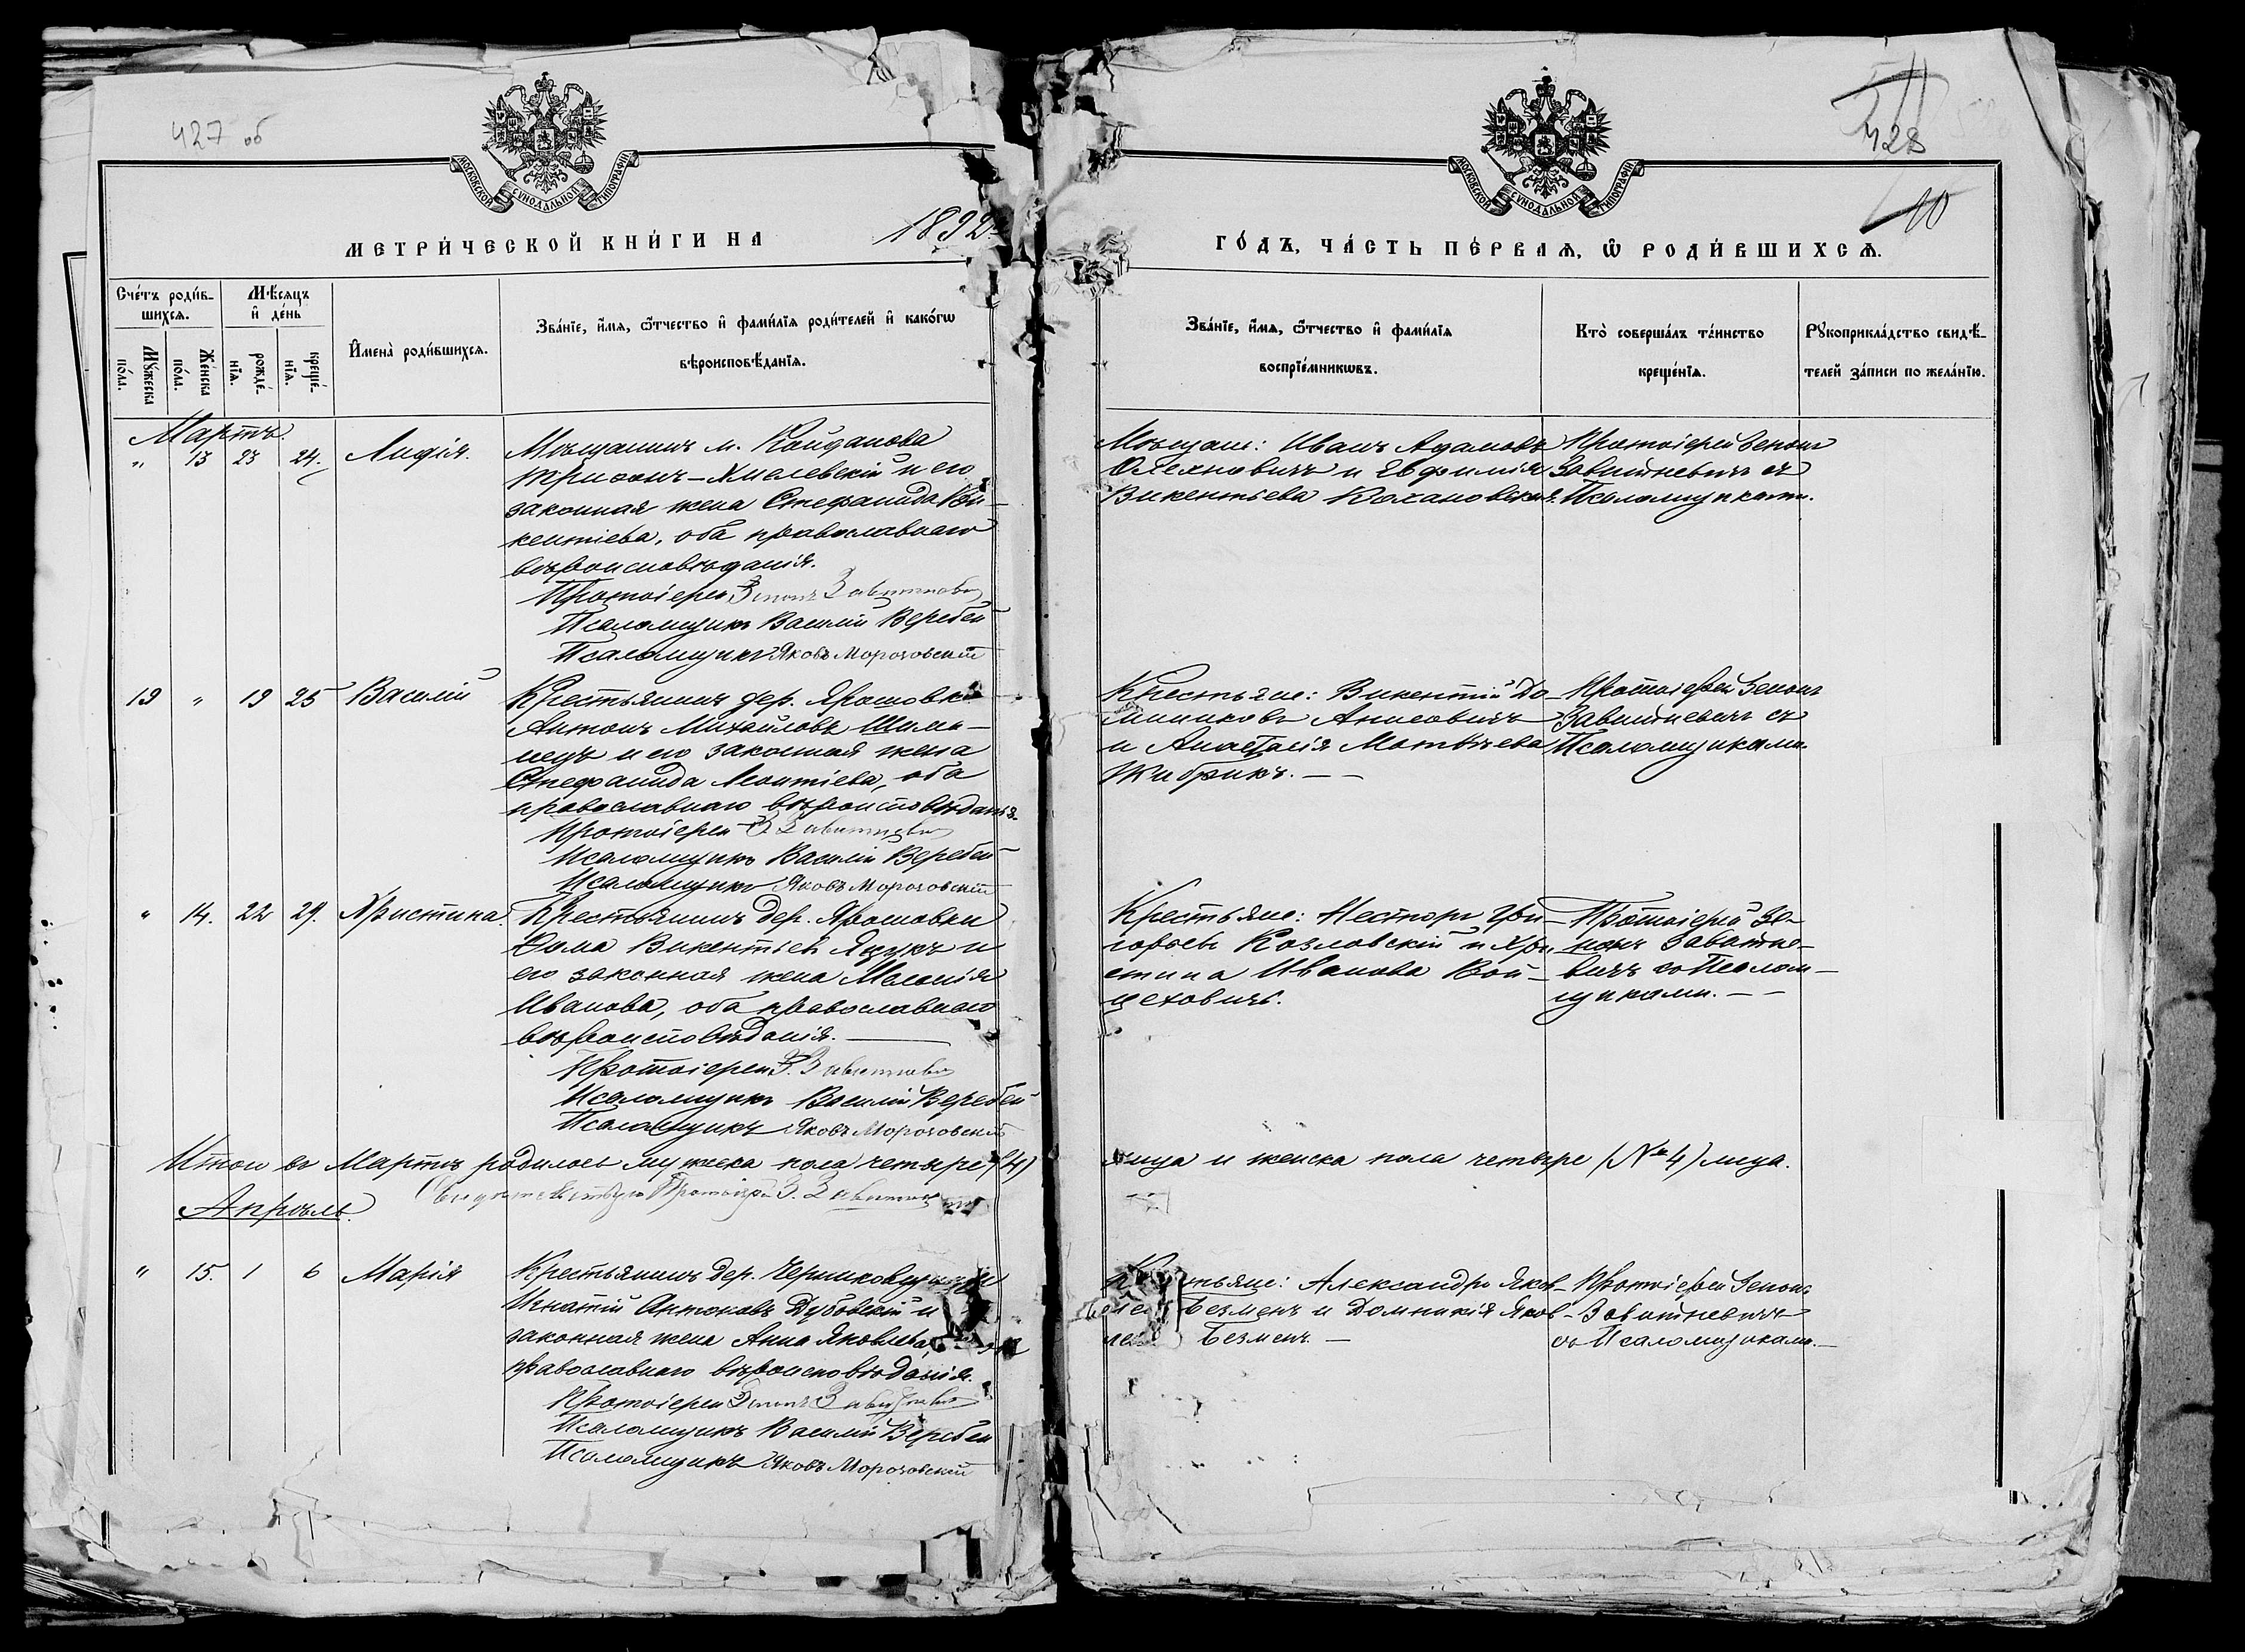 427 об
МОСКОВСКОЙ СѴНОДАЛЬНОЙ ТИПОГРАФІИ
МЕТРИ́ЧЕСКОЙ КНИ́ГИ НА 1892
Сче́тъ роди́в-
шихсѧ.
Мѣ́сѧцъ
и҆ де́нь
Мꙋ́жеска
по́ла.
Же́нска
по́ла.
рожде́-
нїѧ.
креще́-
нїѧ.
И҆мена̀ роди́вшихсѧ.
Зва́нїе, и҆́мѧ, ѻ҆́тчество и҆ фами́лїѧ роди́телей и҆ како́гѡ
вѣроисповѣ́данїѧ.
Мартъ.
" 13 23 24. Лидія.
Мѣщанинъ м. Койданова
Трифонъ Хмелевскій и его
законная жена Стефанида Ви-
кентіева, оба православнаго
вѣроисповѣданія.
Протоіерей Зенонъ Завитневичъ
Псаломщикъ Василій Веребей
Псаломщикъ Яковъ Морозовскій
19 " 19 25 Василій
Крестьянинъ дер. Ярошовки
Антонъ Михайловъ Шима-
нецъ и его законная жена
Стефанида Леонтіева, оба
православнаго вѣроисповѣданія.
Протоіерей З Завитневичъ
Псаломщикъ Василій Веребей
Псаломщикъ Яковъ Морозовскій
" 14. 22 29. Христина.
Крестьянинъ дер. Ярошовки
Ѳома Викентіевъ Яцукъ и
его законная жена Меланія
Иванова, оба православнаго
вѣроисповѣданія.
Протоіерей З. Завитневичъ
Псаломщикъ Василій Веребей
Псаломщикъ Яковъ Морозовскій
Итого въ Мартѣ родилось мужеска пола четыре (4)
Протоіерей З. Завитневичъ
Апрѣль.
" 15. 1 6 Марія
Крестьянинъ дер.
Игнатій Антоновъ Дубовскій и
законная жена Анна Яковлева,
православнаго вѣроисповѣданія.
Протоіерей Зенонъ Завитневичъ
Псаломщикъ Василій Веребей
Псаломщикъ Яковъ Морозовскій
428
10
МОСКОВСКОЙ СѴНОДАЛЬНОЙ ТИПОГРАФІИ
ГО́ДЪ, ЧА́СТЬ ПЕ́РВАѦ, Ѽ РОДИ́ВШИХСѦ.
Зва́нїе, и҆́мѧ, ѻ҆́тчество и҆ фами́лїѧ
воспрїе́мникѡвъ.
Кто̀ соверша́лъ та́инство
креще́нїѧ.
Рꙋкоприкла́дство свидѣ́-
телей за́писи по жела́нїю.
Мѣщане: Иванъ Адамовъ
Олехновичъ и Евфимія
Викентьева Кохановская.
Протоіерей Зенонъ
Завитневичъ съ
Псаломщиками.
Крестьяне: Викентій До-
миниковъ Анисовичъ
и Анастасія Матвѣева
Жибрикъ.
Протоіерей Зенонъ
Завитневичъ съ
Псаломщиками.
Крестьяне: Несторъ Гри-
горьевъ Козловскій и Хри-
стина Иванова Вой-
цеховичъ.
Протоіерей Зе-
нонъ Завитне-
вичъ со Псалом-
щиками.
лица и женска пола четыре (№ 4) лица.
Александръ Яков-
Безменъ и Домникія Яков-
Безменъ.
Протоіерей Зенонъ
Завитневичъ
съ Псаломщиками.